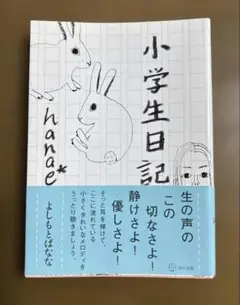 小学生日記
hanae*
生の声の
この
切なさよ！
静けさよ！
優しさよ！
そっと耳を傾けて、
ここに流れている
小さくきれいなメロディを
うっとり聴きましょう。
よしもとばなな